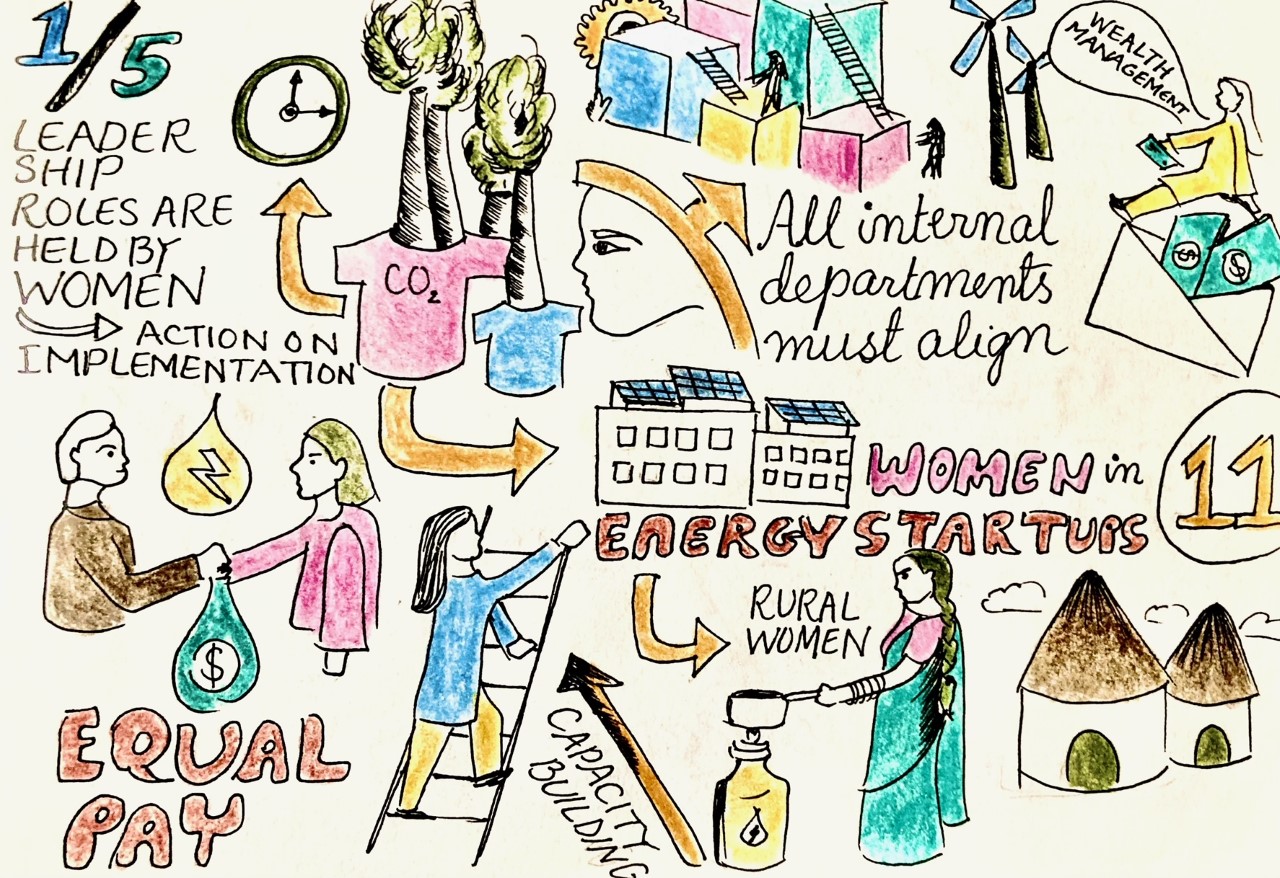 1/5
LEADER
SHIP
ROLES ARE
HELD BY
WOMEN
ACTION ON
IMPLEMENTATION
CO2
WEALTH
MANAGEMENT
All internal
departments
must align
$ $
WOMEN in
ENERGY STARTUPS
11
RURAL
WOMEN
$
EQUAL
PAY
CAPACITY
BUILDING